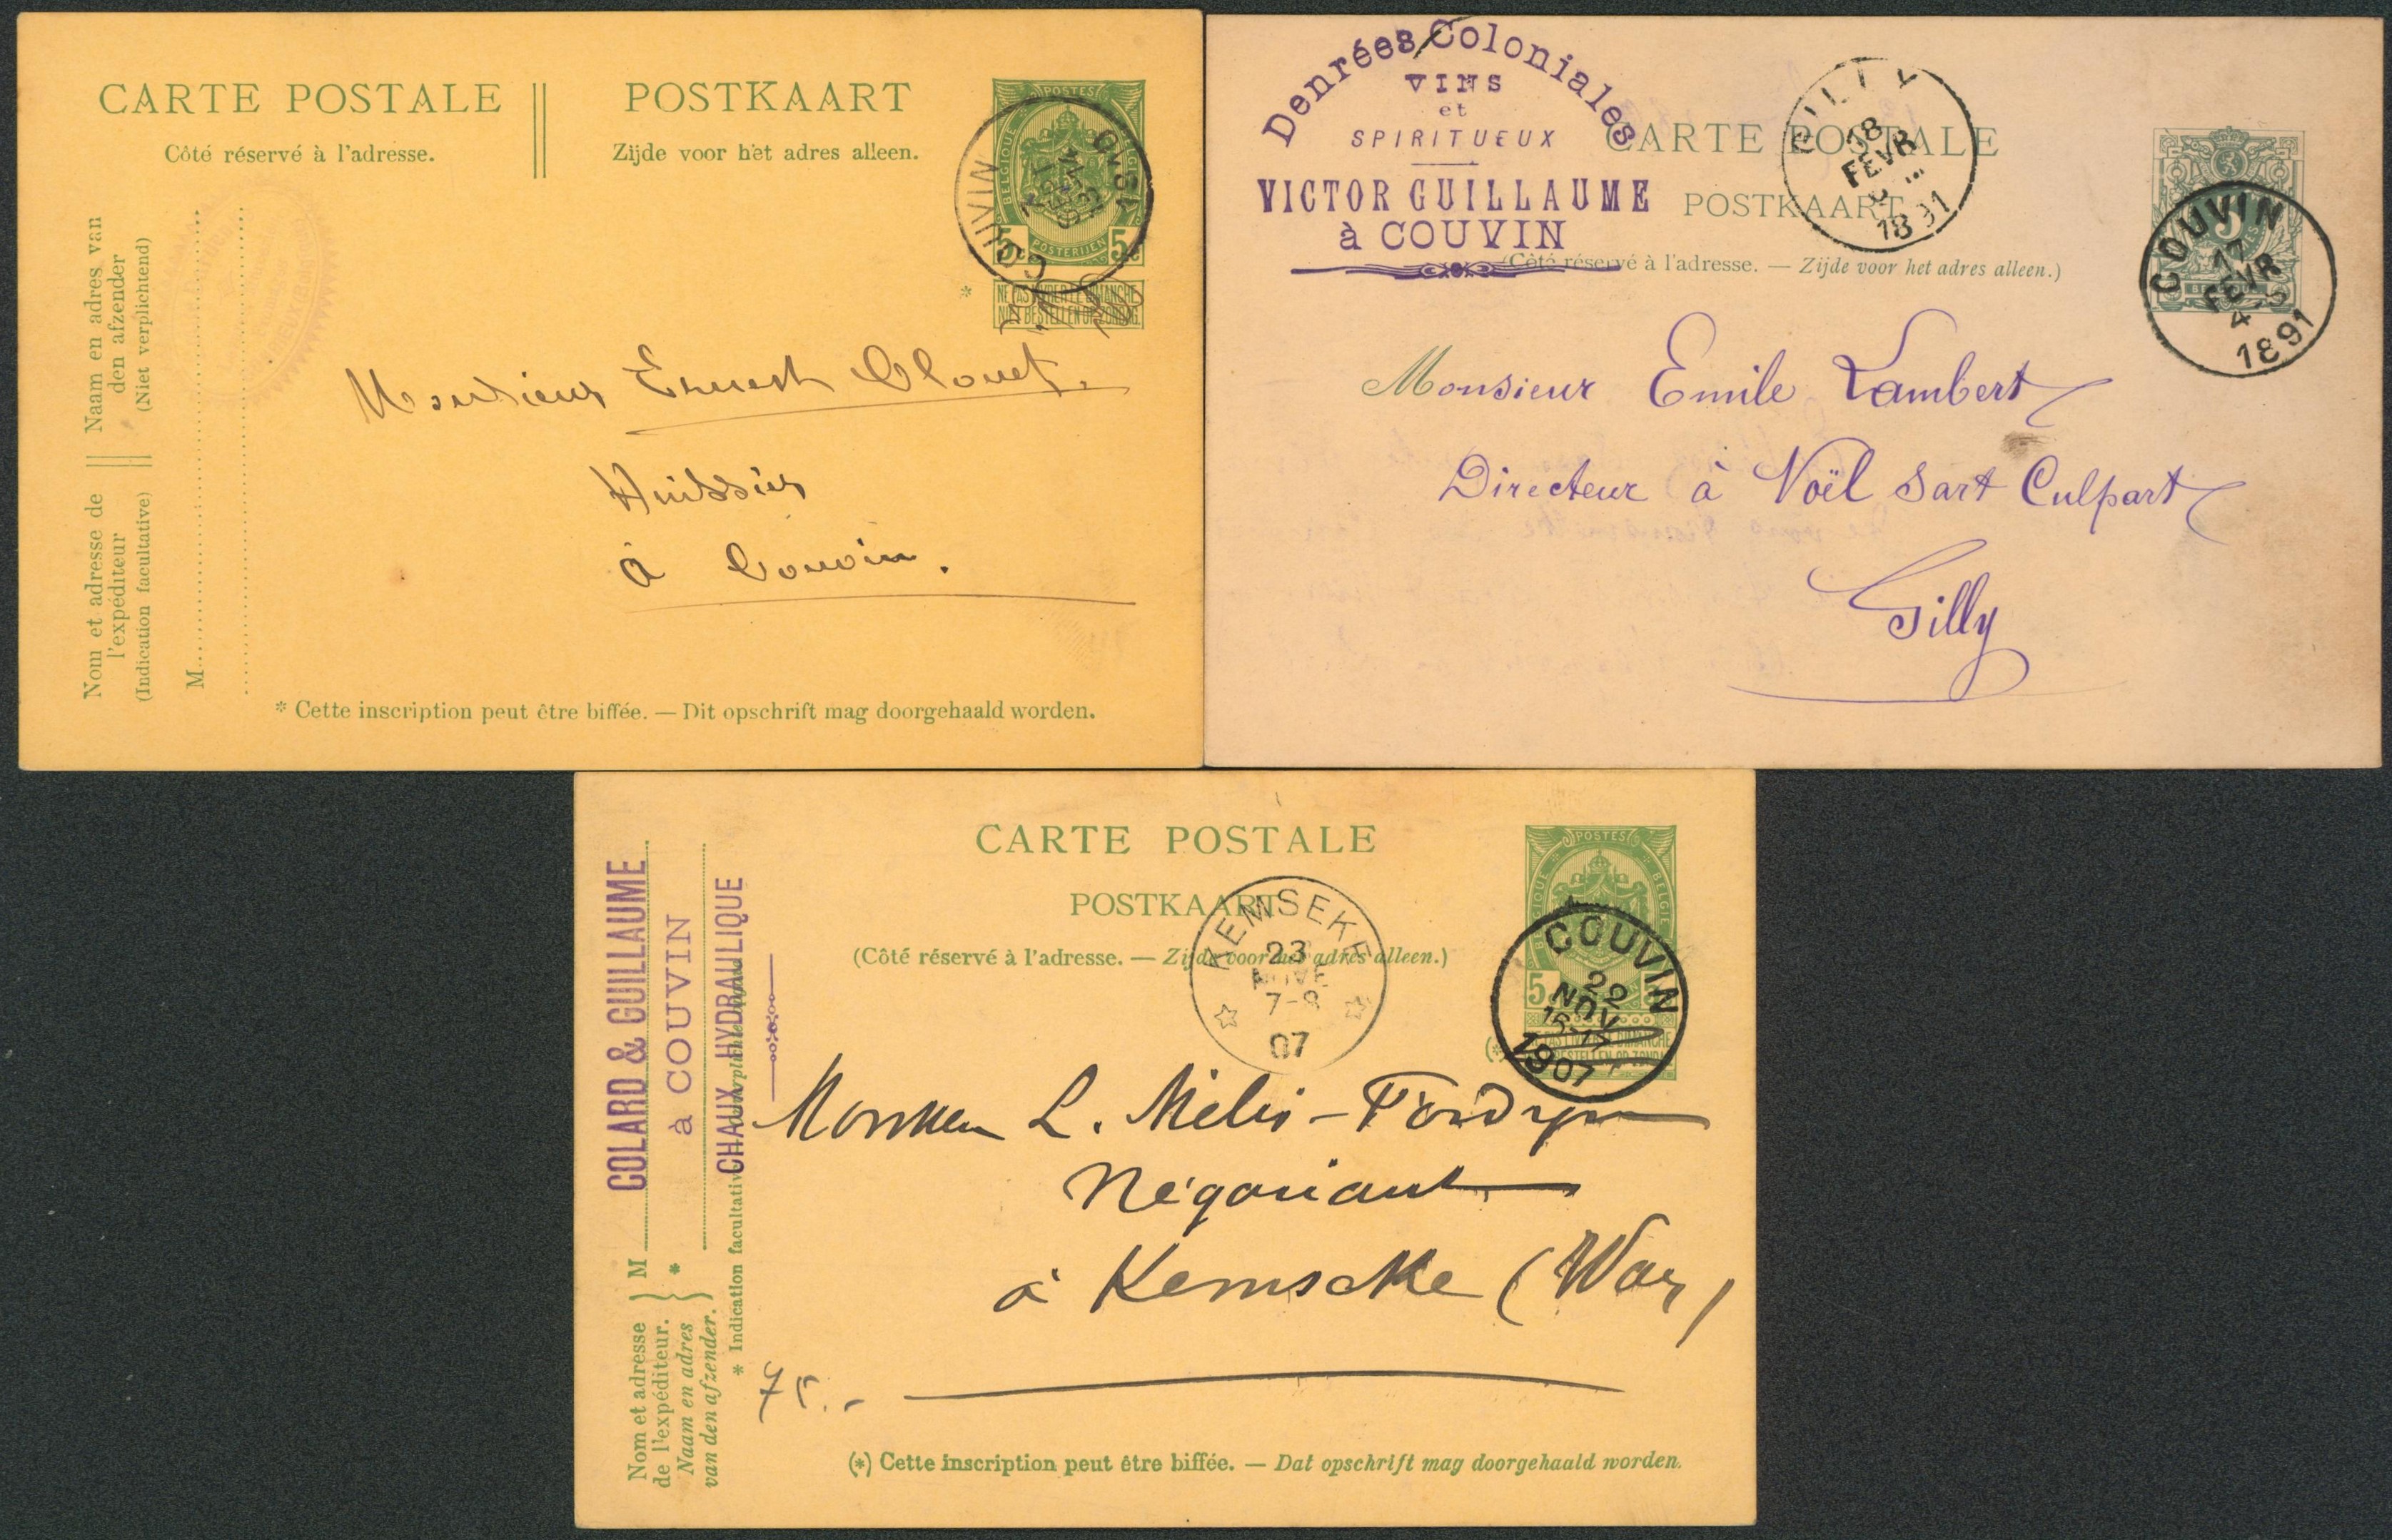 CARTE POSTALE
Côté réservé à l'adresse.
POSTKAART
Zijde voor het adres alleen.
POSTES
BELGIQUE
BELGIE
5 5
POSTERIJEN
NE PAS LIVRER LE DIMANCHE
NIET BESTELLEN OP ZONDAG.
COUVIN
*
Nom et adresse de
l'expéditeur
(Indication facultative)
Naam en adres van
den afzender
(Niet verplichtend)
M
Monsieur Ernest Clouet.
Huissier
à Couvin.
* Cette inscription peut être biffée. — Dit opschrift mag doorgehaald worden.
Denrées Coloniales
VINS
et
SPIRITUEUX
VICTOR GUILLAUME
à COUVIN
CARTE POSTALE
POSTKAART
(Côté réservé à l'adresse. — Zijde voor het adres alleen.)
GILLY
18
FEVR
1891
5
COUVIN
17
FEVR
4-5
1891
Monsieur Emile Lambert
Directeur à Noël Sart Culpart
Gilly
CARTE POSTALE
POSTKAART
(Côté réservé à l'adresse. — Zijde voor het adres alleen.)
KEMSEKE
23
NOVE
7-8
07
POSTES
BELGIQUE
BELGIE
5
COUVIN
22
NOV
16-17
1907
COLARD & GUILLAUME
à COUVIN
CHAUX HYDRAULIQUE
Nom et adresse
de l'expéditeur.
Naam en adres
van den afzender.
M
*
* Indication facultative
Monsieur L. Melis-
Négociant
à Kemseke (Waes)
75.-
(*) Cette inscription peut être biffée. — Dat opschrift mag doorgehaald worden.